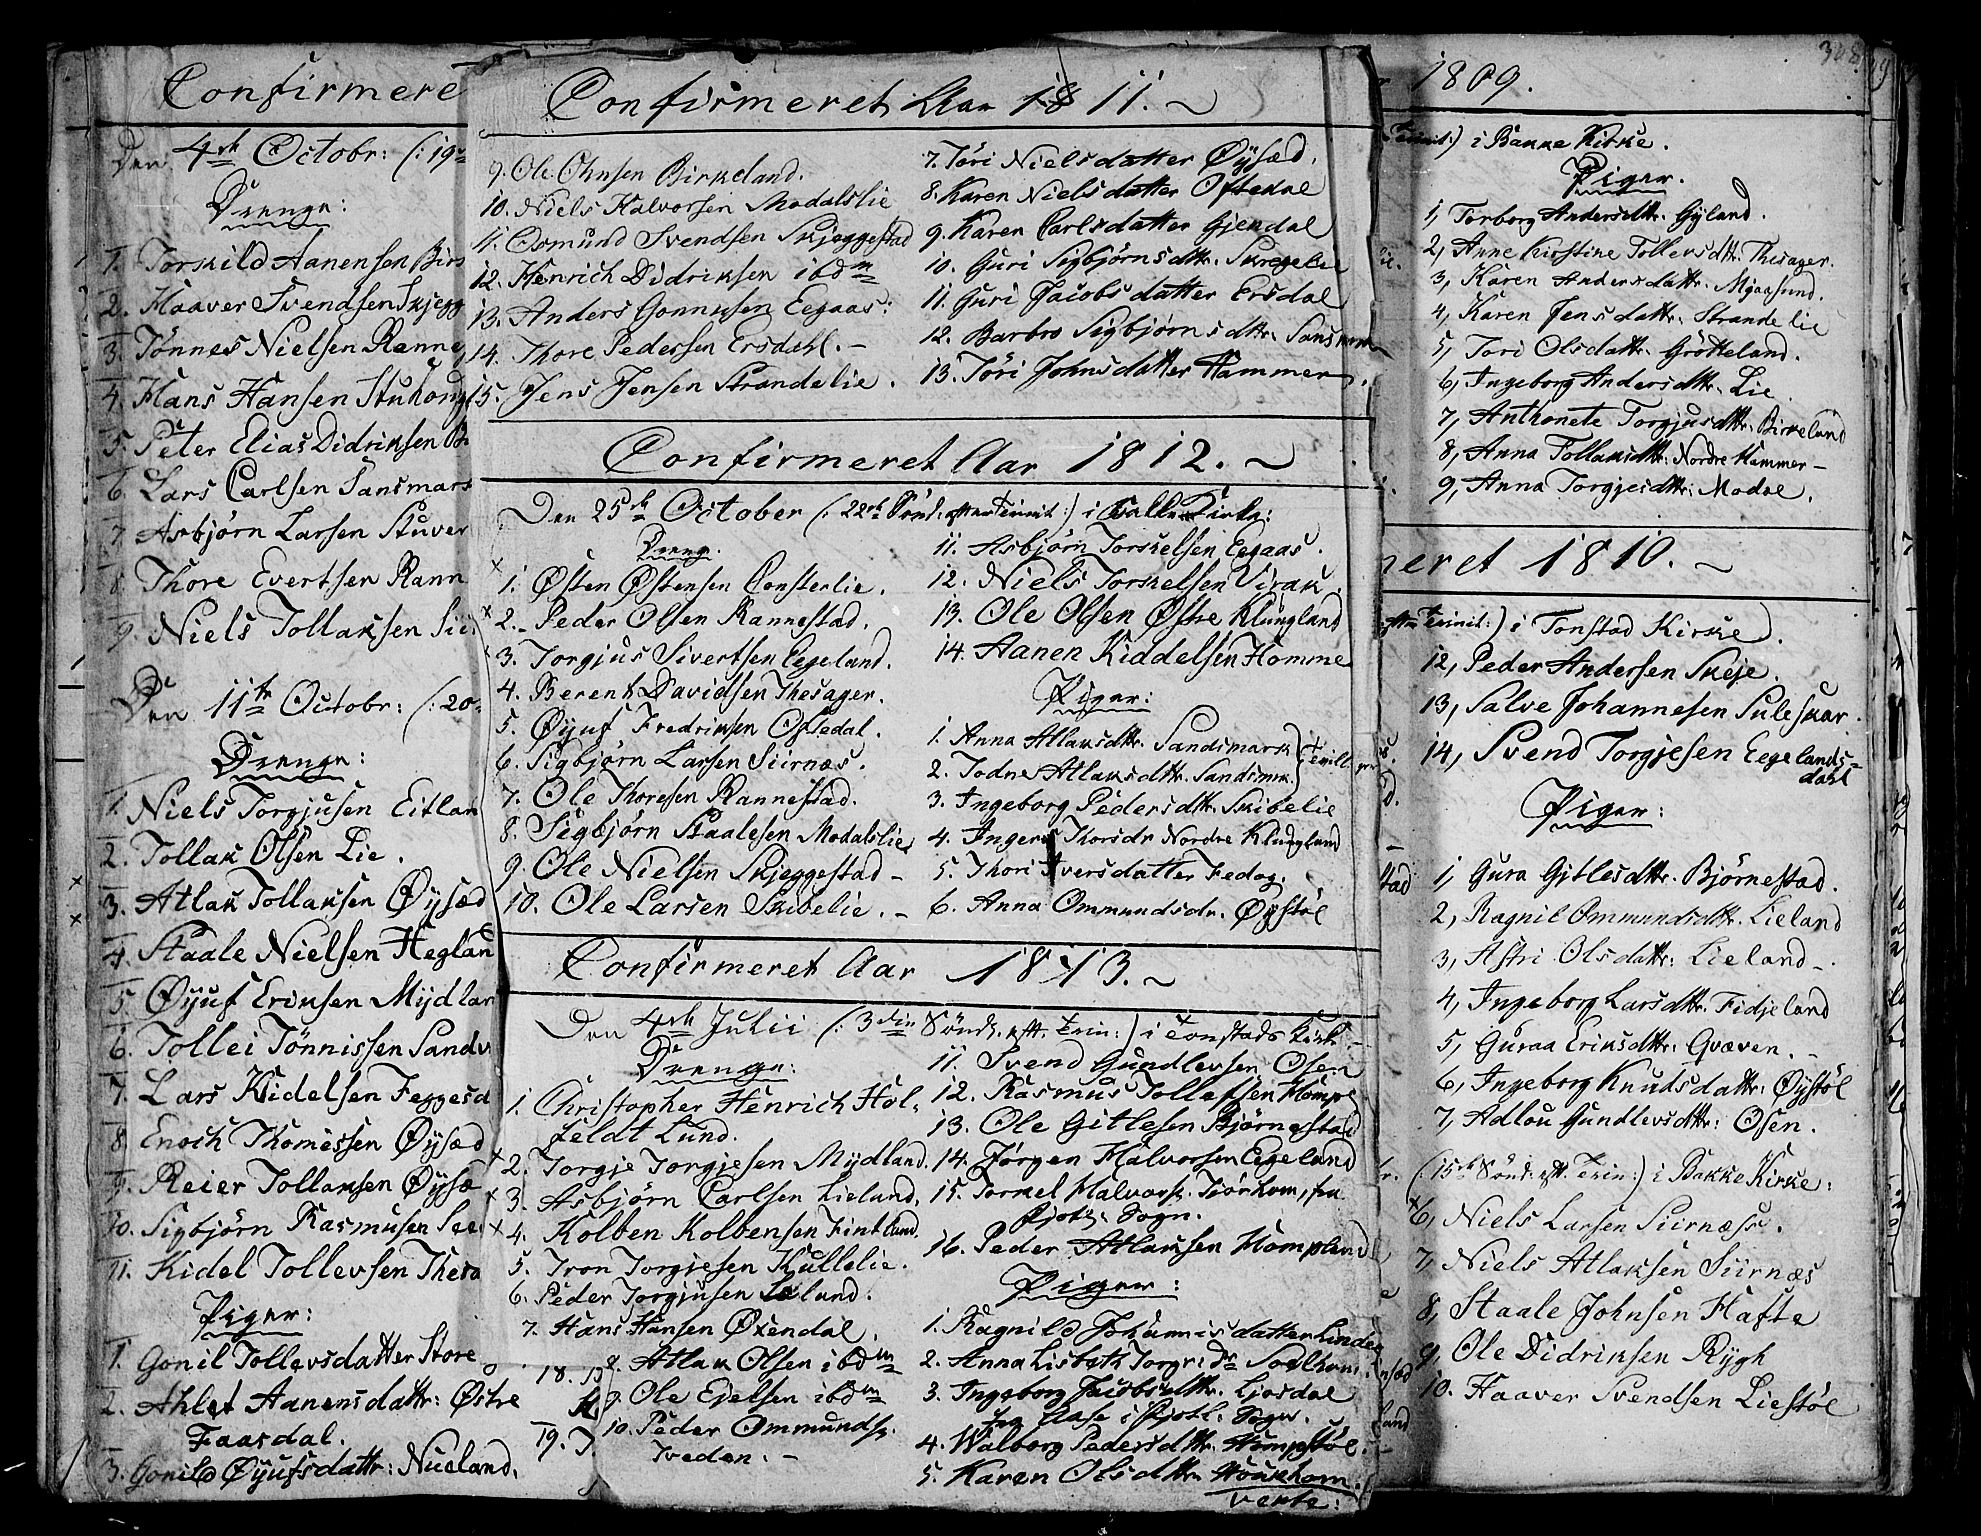 Confirmere
Den 4de Octobr: (: 19
Drenge:
1. Torskild Aanensen Birk
2. Haaver Svendsen Skjegg
3. Tönnes Nielsen Ranne
4. Hans Hansen Stuhoug
5. Peter Elias Didriksen
6. Lars Carlsen Sansmark
7. Asbjörn Larsen Stuver
8. Thore Evertsen Rann
9. Niels Tollaksen Sii
Den 11te Octobr: (: 20
Drenge:
1. Niels Torgjusen Eitlan
2. Tollak Olsen Lie.
3. Atlak Tollaksen Öysæd
4. Staale Nielsen Heglan
5. Öyuf Eriksen Mydlan
6. Tollei Tönnissen Sandv
7. Lars Kidelsen Feggesd
8. Enoch Thomessen Öysæd
9. Reier Tollaksen Öysæ
10. Sigbjörn Rasmusen See
11. Kidel Tollevsen Thesa
Piger:
1. Gonil Tollevsdatter Store
2. Ahlet Aanensdattr: Östre
Faasdal.
3. Gonild Öyufsdattr: Nueland.
18.
19. T
Confirmeret Aar 1811. ~
9. Ole Ohnsen Birkeland.
10. Niels Halvorsen Modalslie
11. Osmund Svendsen Skjeggestad
12. Henrich Didriksen ibdm
13. Anders Gonnusen Eegaas:
14. Thore Pedersen Ersdahl. -
15. Jens Jensen Strandelie.
7. Töri Nielsdatter Öysæd.
8. Karen Nielsdatter Oftedal
9. Karen Carlsdatter Gjendal
10. Guri Sigbjörnsdttr. Skregelie
11. Guri Jacobsdatter Ersdal
12. Barbro Sigbjörnsdttr. Sansmark
13. Töri Johnsdatter Hammer.
Confirmeret Aar 1812. ~
Den 25de October (: 22de Sönd: efter Trinit:) i Bakke Kirke:
Drenge.
1. Östen Östensen Consterlie.
2. Peder Olsen Rannestad.
3. Torgjus Sivertsen Eegeland.
4. Berent Davidsen Thesager.
5. Öyuf Fredriksen Oftedal.
6. Sigbjörn Larsen Siirnæs.
7. Ole Thoresen Rannestad.
8. Sigbjörn Staalesen Modalslie
9. Ole Nielsen Skjeggestad -
10. Ole Larsen Skibelie. -
11. Asbjörn Torkelsen Eegaas.
12. Niels Torkelsen Virak
13. Ole Olsen Östre Klungland
14. Aanen Kiddelsen Homme
Piger:
1. Anna Atlaksdttr. Sandsmark
2. Jodne Atlaksdttr. Sandsmrk.
3. Ingeborg Pedersdttr. Skibelie
4. Inger Thorsdr Nordre Klungland
5. Thori Iversdatter Fedog.
6. Anna Ommundsdr. Öystöl
Confirmeret Aar 1813. ~
Den 4de Julii (: 3die Sönd. eft. Trin:) i Tonstads Kirk
Drenge:
1. Christopher Henrich Hol-
feldt Lund.
2. Torgje Torgjesen Mydland.
3. Asbjörn Carlsen Lieland.
4. Kolben Kolbensen Fintland.
5. Tron Torgjesen Kullelie.
6. Peder Torgjusen Leland.
7. Hans Hansen Öxendal.
8. Atlak Olsen ibdm
9. Ole Ejelsen ibdm
10. Peder Ommunds.
Tveden. -
11. Svend Gundlevsen Osen
12. Rasmus Tollefsen Hompl
13. Ole Gitlesen Björnestad
14. Jörgen Halvorsen Eegeland
15. Torkel Halvors. Tjörhom, fra
Fjotl. Sogn.
16. Peder Atlaksen Hompland
Piger:
1. Ragnild Johannisdatter Linde
2. Anna Lisbeth Torgr: Dr Soelhom.
3. Ingeborg Jacobsdttr. Ljosdal
fra Aase i Fjotl. Sogn.
4. Walborg Pedersdttr. Hompstöl.
5. Karen Olsdttr. Houkhom.
verte:
308
1809.
Trinit:) i Bakke Kirke.
Piger.
1, Torborg Andersdttr. Gyland.
2, Anne Kirstine Tollevsdttr. Thesager.
3, Karen Andersdattr. Mjaasund.
4, Karen Jensdattr. Strandelie
5, Tori Olsdattr. Grötteland.
6, Ingeborg Andersdttr. Lie
7, Anthonete Torgjusdttr. Birkeland
8, Anna Tollaksdttr: Nordre Hammer -
9, Anna Torgjesdttr: Modal.
neret 1810. ~
efter Trinit:) i Tonstad Kirke.
12, Peder Andersen Skeje.
13, Salve Johannesen Suleskar.
14, Svend Torgjesen Eegelands-
dahl
Piger:
1, Gura Gitlesdttr. Björnestad.
2, Ragnil Ommundsdttr. Lieland
3, Astri Olsdattr: Lieland -
4, Ingeborg Larsdttr. Fidjeland
5, Guraa Eriksdttr: Qvæven. -
6, Ingeborg Knudsdattr: Öystöl
7, Adlou Gundlevsdttr: Osen.
(15de Sönd: eft. Trin:) i Bakke Kirke:
6, Niels Larsen Siirnæss.
7, Niels Atlaksen Siirnæs
8, Staale Johnsen Hafte
9, Ole Didriksen Rygh
10. Haaver Svendsen Liestöl